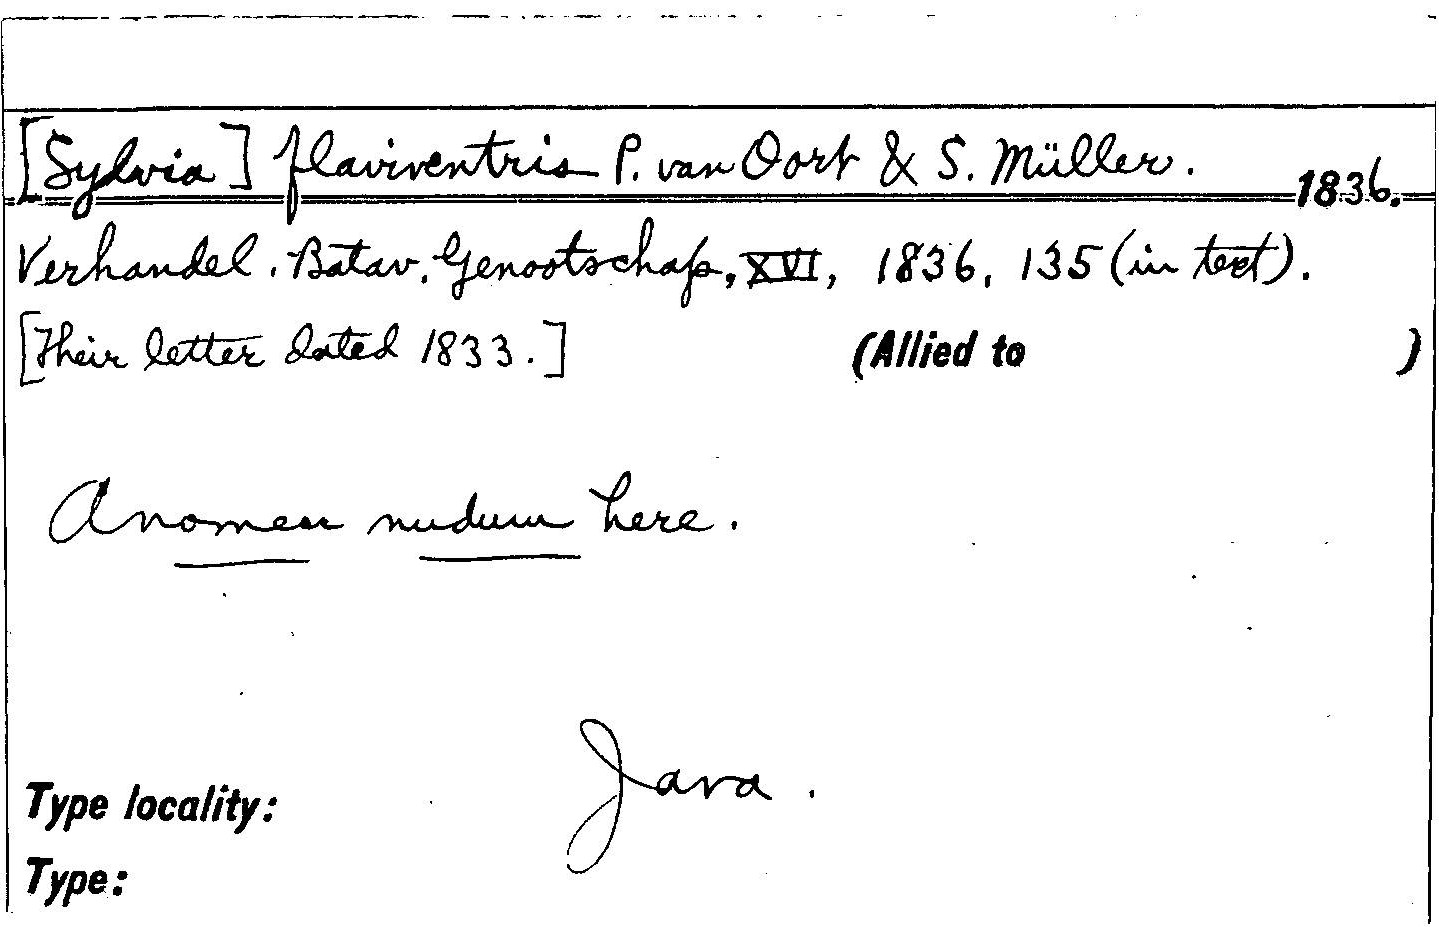 [Sylvia] flaviventris P. van Oort & S. Müller. 1836.
Verhandel. Batav. Genootschap, XVI, 1836, 135 (in text).
[Their letter dated 1833.] (Allied to )
A nomen nudum here.
Type locality: Java.
Type: